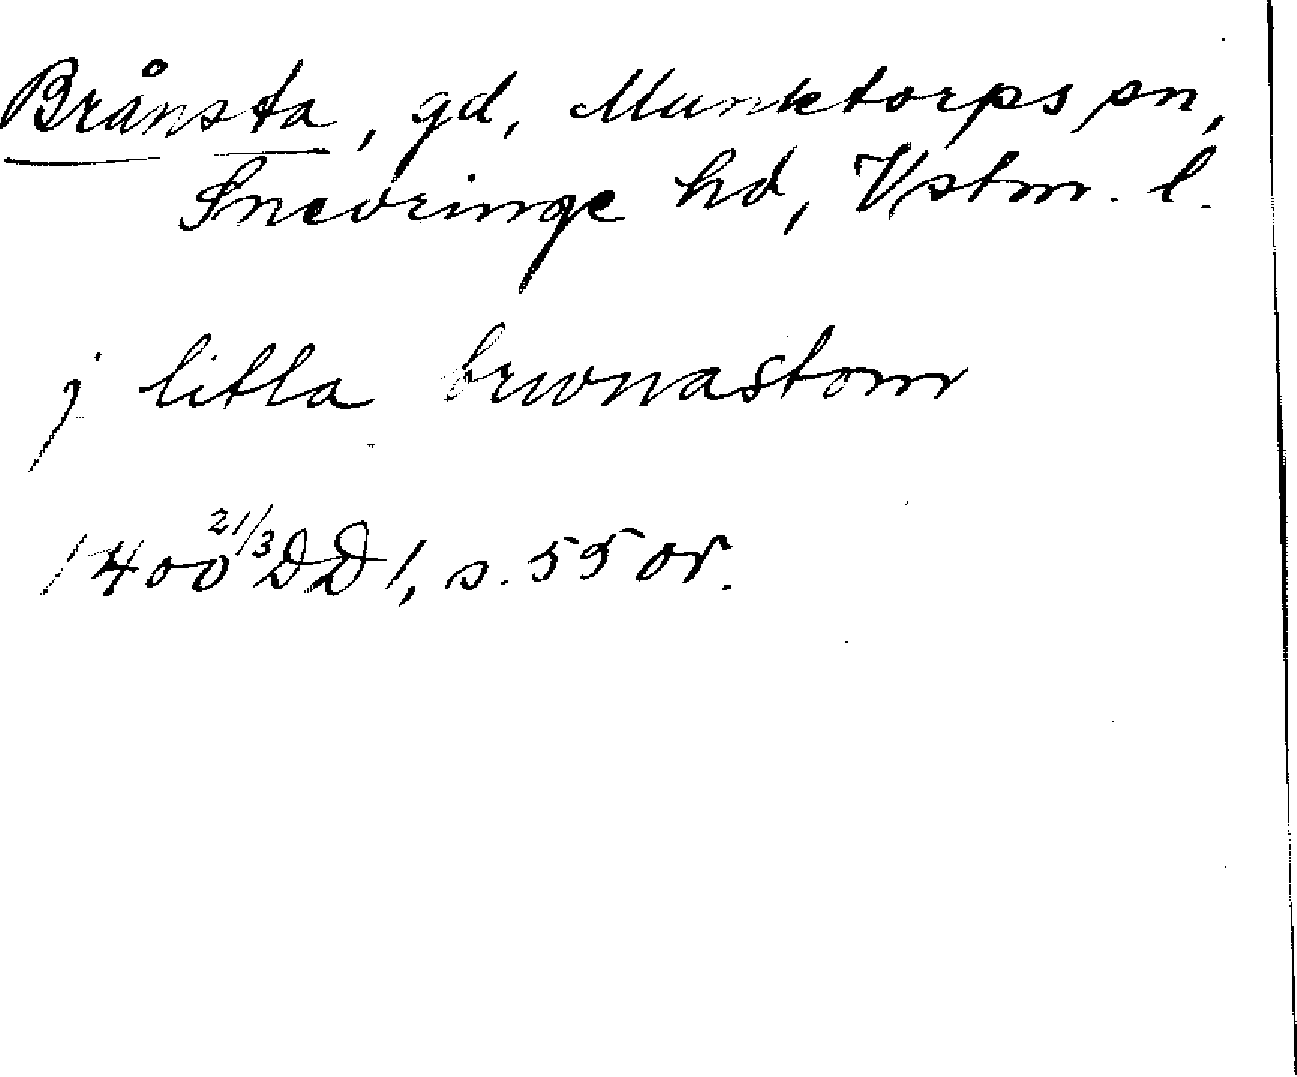 Brånsta, gd, Munktorps sn,
Snevringe hd, Vstm. l.
j litla brwnastom
1400 21/3 DD 1, s. 55 or.